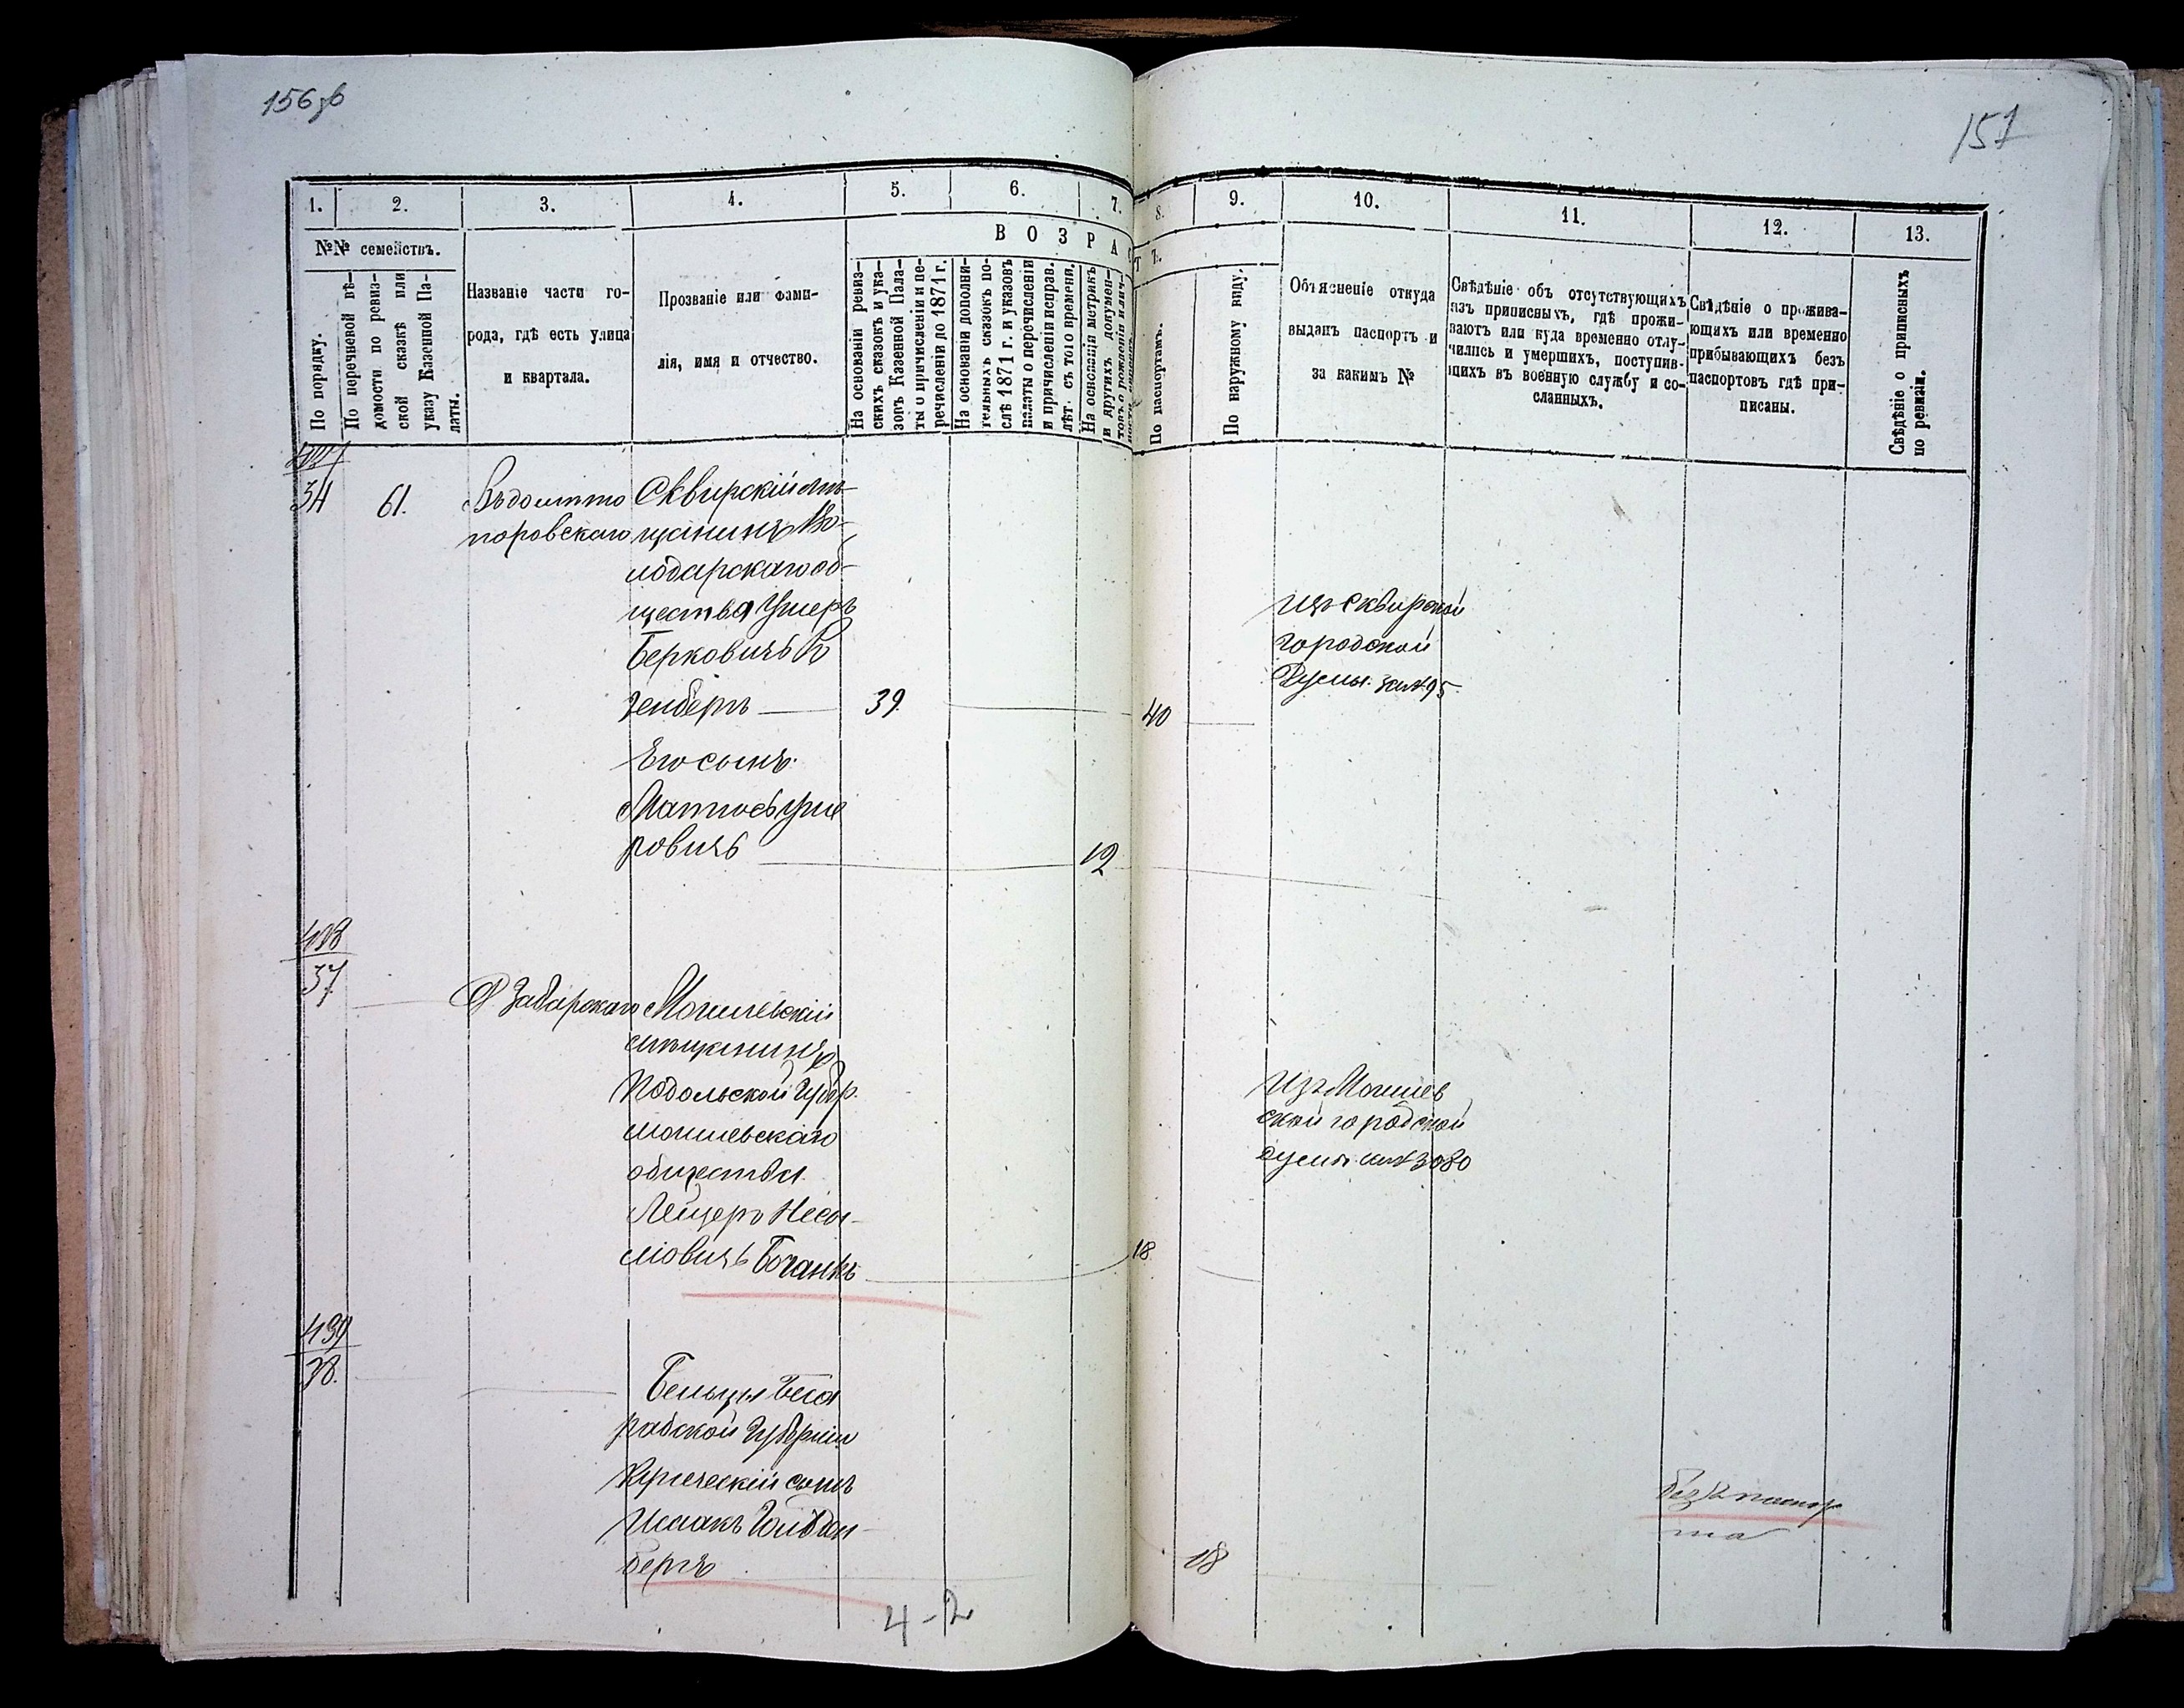 156 об
157
1.
2.
3.
4.
5.
6.
7.
8.
9.
10.
11.
12.
13.
№№ семействъ.
По порядку.
По перечневой вѣ-
домости по ревиз-
ской сказкѣ или
указу Казенной Па-
латы.
Названіе части го-
рода, гдѣ есть улица
и квартала.
Прозваніе или фами-
лія, имя и отчество.
ВОЗРАСТЪ.
На основаніи ревиз-
скихъ сказокъ и ука-
зовъ Казенной Пала-
ты о причисленіи и пе-
речисленіи до 1871 г.
На основаніи дополни-
тельныхъ сказокъ по-
слѣ 1871 г. и указовъ
палаты о перечисленіи
и причисленіи исправ.
лѣт. съ того времени.
На основаніи метрикъ
и другихъ докумен-
товъ о рожденіи
По паспортамъ.
По наружному виду.
Объясненіе откуда
выданъ паспортъ и
за какимъ №
Свѣдѣніе объ отсутствующихъ
изъ приписныхъ, гдѣ прожи-
ваютъ или куда временно отлу-
чились и умершихъ, поступив-
шихъ въ военную службу и со-
сланныхъ.
Свѣдѣніе о прожива-
ющихъ или временно
прибывающихъ безъ
паспортовъ гдѣ при-
писаны.
Свѣдѣніе о приписныхъ
по ревизіи.
34
61.
Въ дом
Сквирскій мѣ-
щанинъ Во-
лодарскаго об-
щества Ушеръ
Берковичъ Ро
зенбергъ
39.
40
Изъ Сквирской
городской
Думы. за № 95.
Его сынъ
Матюсъ Уше
ровичъ
12
428
37
Д Забарскаго
Могилевскій
мѣщанинъ
Подольской Губер.
могилевскаго
общества
Лейзеръ
Боганъ
18
Изъ Могилев
ской городской
думы за № 3080
439
38.
Бельцы Беса
рабской Губерніи
Купеческій сынъ
Исаакъ Гольден
бергъ
18
безъ паспор
та
4-2